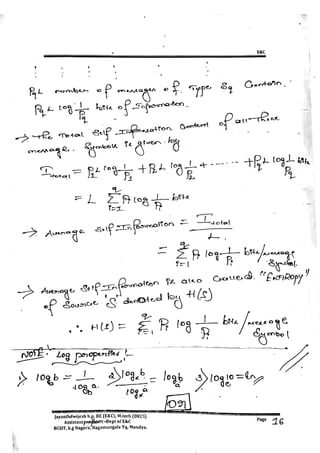 E&C
PqL number of messages of Type Sq Contain.
PqL log 1/Pq bits of Information.
→ The Total Self-Information Content of all these
message Symbols is given by
Itotal = P1L log 1/P1 + P2L log 1/P2 + ------ + PqL log 1/Pq bits
= L Σ(i=1 to q) Pi log 1/Pi bits
→ Average Self-Information = Itotal / L
= Σ(i=1 to q) Pi log 1/Pi bits/message Symbol.
→ Average Self-Information is also Called "ENTROPY"
of Source 'S' denoted by H(S)
∴ H(S) = Σ(i=1 to q) Pi log 1/Pi bits/message Symbol
NOTE: Log properties:
1) log b = 1/log a 2) log b / log a = log b 3) log 10 = ln
[09]
Jayanthdwijesh h.p, BE (E&C), M.tech (DECS).
Assistant -Dept of E&C
BGSIT, b.g Nagara, Nagamangala Tq, Mandya.
Page 16